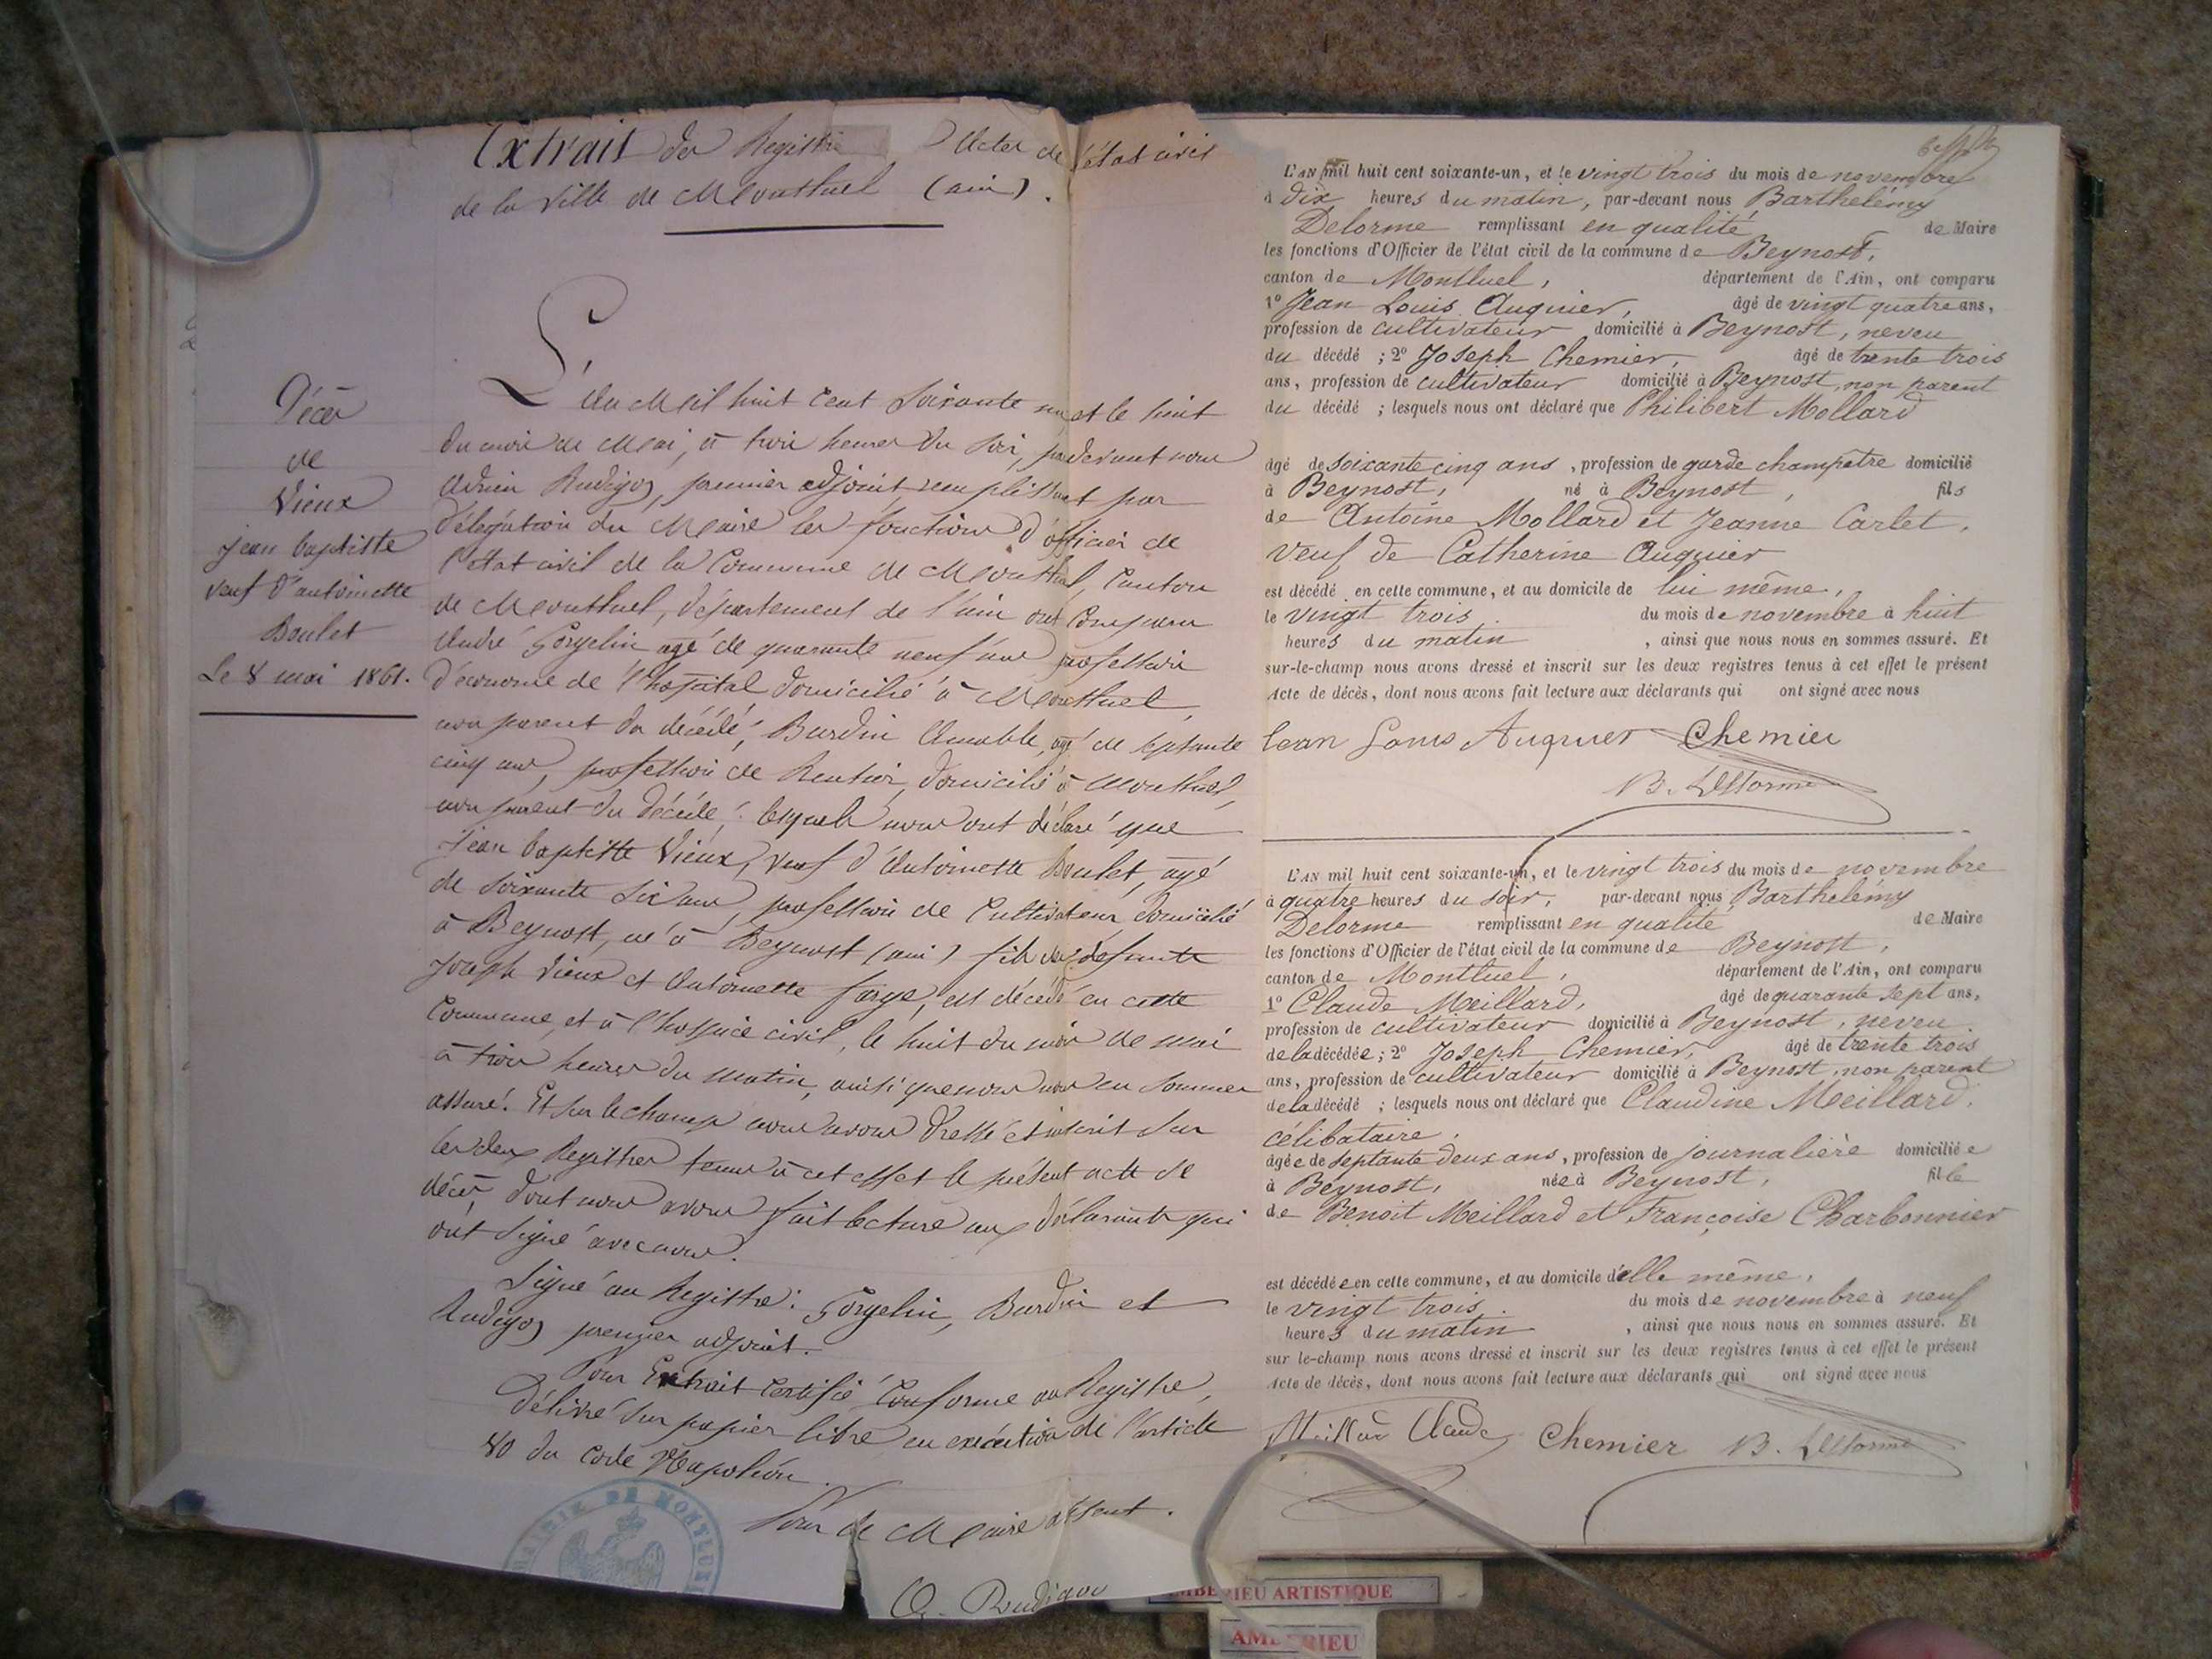 Extrait des Registres Actes de l'état civil
de la Ville de Montluel (ain).
Décès
de
Vieux
jean baptiste
veuf d'antoinette
Boulet
Le 8 mai 1861.
L'an Mil huit Cent Soixante un et le huit
du mois de Mai, à trois heures du soir, pardevant nous
Adrien Rudigoz, premier adjoint, remplissant par
délégation du Maire les fonctions d'officier de
l'état civil de la Commune de Montluel, Canton
de Montluel, département de l'ain ont Comparu
André Gorgelin agé de quarante neuf ans profession
d'économe de l'hospital domicilié à Montluel,
non parent du décédé, Burdin Amable, agé de septante
cinq ans, profession de Rentier, domicilié à Montluel,
non parent du décédé; lesquels nous ont déclaré que
Jean baptiste Vieux, veuf d'Antoinette Boulet, agé
de soixante six ans, profession de Cultivateur, domicilié
à Beynost, né à Beynost (ain) fils de défunts
Joseph Vieux et Antoinette forge, est décédé en cette
Commune, et à l'hospice civil, le huit du mois de mai
à trois heures du matin, ainsi que nous nous en sommes
assuré. Et sur le champ nous avons dressé et inscrit sur
les deux Registres tenus à cet effet le présent acte de
décès, dont nous avons fait lecture aux déclarants qui
ont signé avec nous.
Signé au Registre: Gorgelin, Burdin et
Rudigoz premier adjoint.
Pour Extrait Certifié Conforme au Registre,
délivré sur papier libre en exécution de l'article
80 du Code Napoléon.
Pour le Maire absent.
A. Rudigoz
MAIRIE DE MONTLUEL
L'AN mil huit cent soixante-un, et le vingt trois du mois de novembre
à dix heures du matin, par-devant nous Barthelémy
Delorme remplissant en qualité de Maire
les fonctions d'Officier de l'état civil de la commune de Beynost,
canton de Montluel, département de l'Ain, ont comparu
1º Jean Louis Auguier, âgé de vingt quatre ans,
profession de cultivateur domicilié à Beynost, neveu
du décédé ; 2º Joseph Chemier, âgé de trente trois
ans, profession de cultivateur domicilié à Beynost, non parent
du décédé ; lesquels nous ont déclaré que Philibert Mollard
âgé de soixante cinq ans, profession de garde champêtre domicilié
à Beynost, né à Beynost, fils
de Antoine Mollard et Jeanne Carlet,
veuf de Catherine Auguier
est décédé en cette commune, et au domicile de lui même,
le vingt trois du mois de novembre à huit
heures du matin, ainsi que nous nous en sommes assuré. Et
sur-le-champ nous avons dressé et inscrit sur les deux registres tenus à cet effet le présent
Acte de décès, dont nous avons fait lecture aux déclarants qui ont signé avec nous
Jean Louis Auguier Chemier
B. Delorme
L'AN mil huit cent soixante-un, et le vingt trois du mois de novembre
à quatre heures du soir, par-devant nous Barthelémy
Delorme remplissant en qualité de Maire
les fonctions d'Officier de l'état civil de la commune de Beynost,
canton de Montluel, département de l'Ain, ont comparu
1º Claude Meillard, âgé de quarante sept ans,
profession de cultivateur domicilié à Beynost, neveu
de la décédée ; 2º Joseph Chemier, âgé de trente trois
ans, profession de cultivateur domicilié à Beynost, non parent
de la décédé ; lesquels nous ont déclaré que Claudine Meillard,
célibataire,
âgée de septante deux ans, profession de journalière domiciliée
à Beynost, née à Beynost, fille
de Benoit Meillard et Françoise Charbonnier
est décédée en cette commune, et au domicile d'elle même,
le vingt trois du mois de novembre à neuf
heures du matin, ainsi que nous nous en sommes assuré. Et
sur le-champ nous avons dressé et inscrit sur les deux registres tenus à cet effet le présent
Acte de décès, dont nous avons fait lecture aux déclarants qui ont signé avec nous
Meillard Claude Chemier B. Delorme
AMBERIEU ARTISTIQUE
AMBERIEU